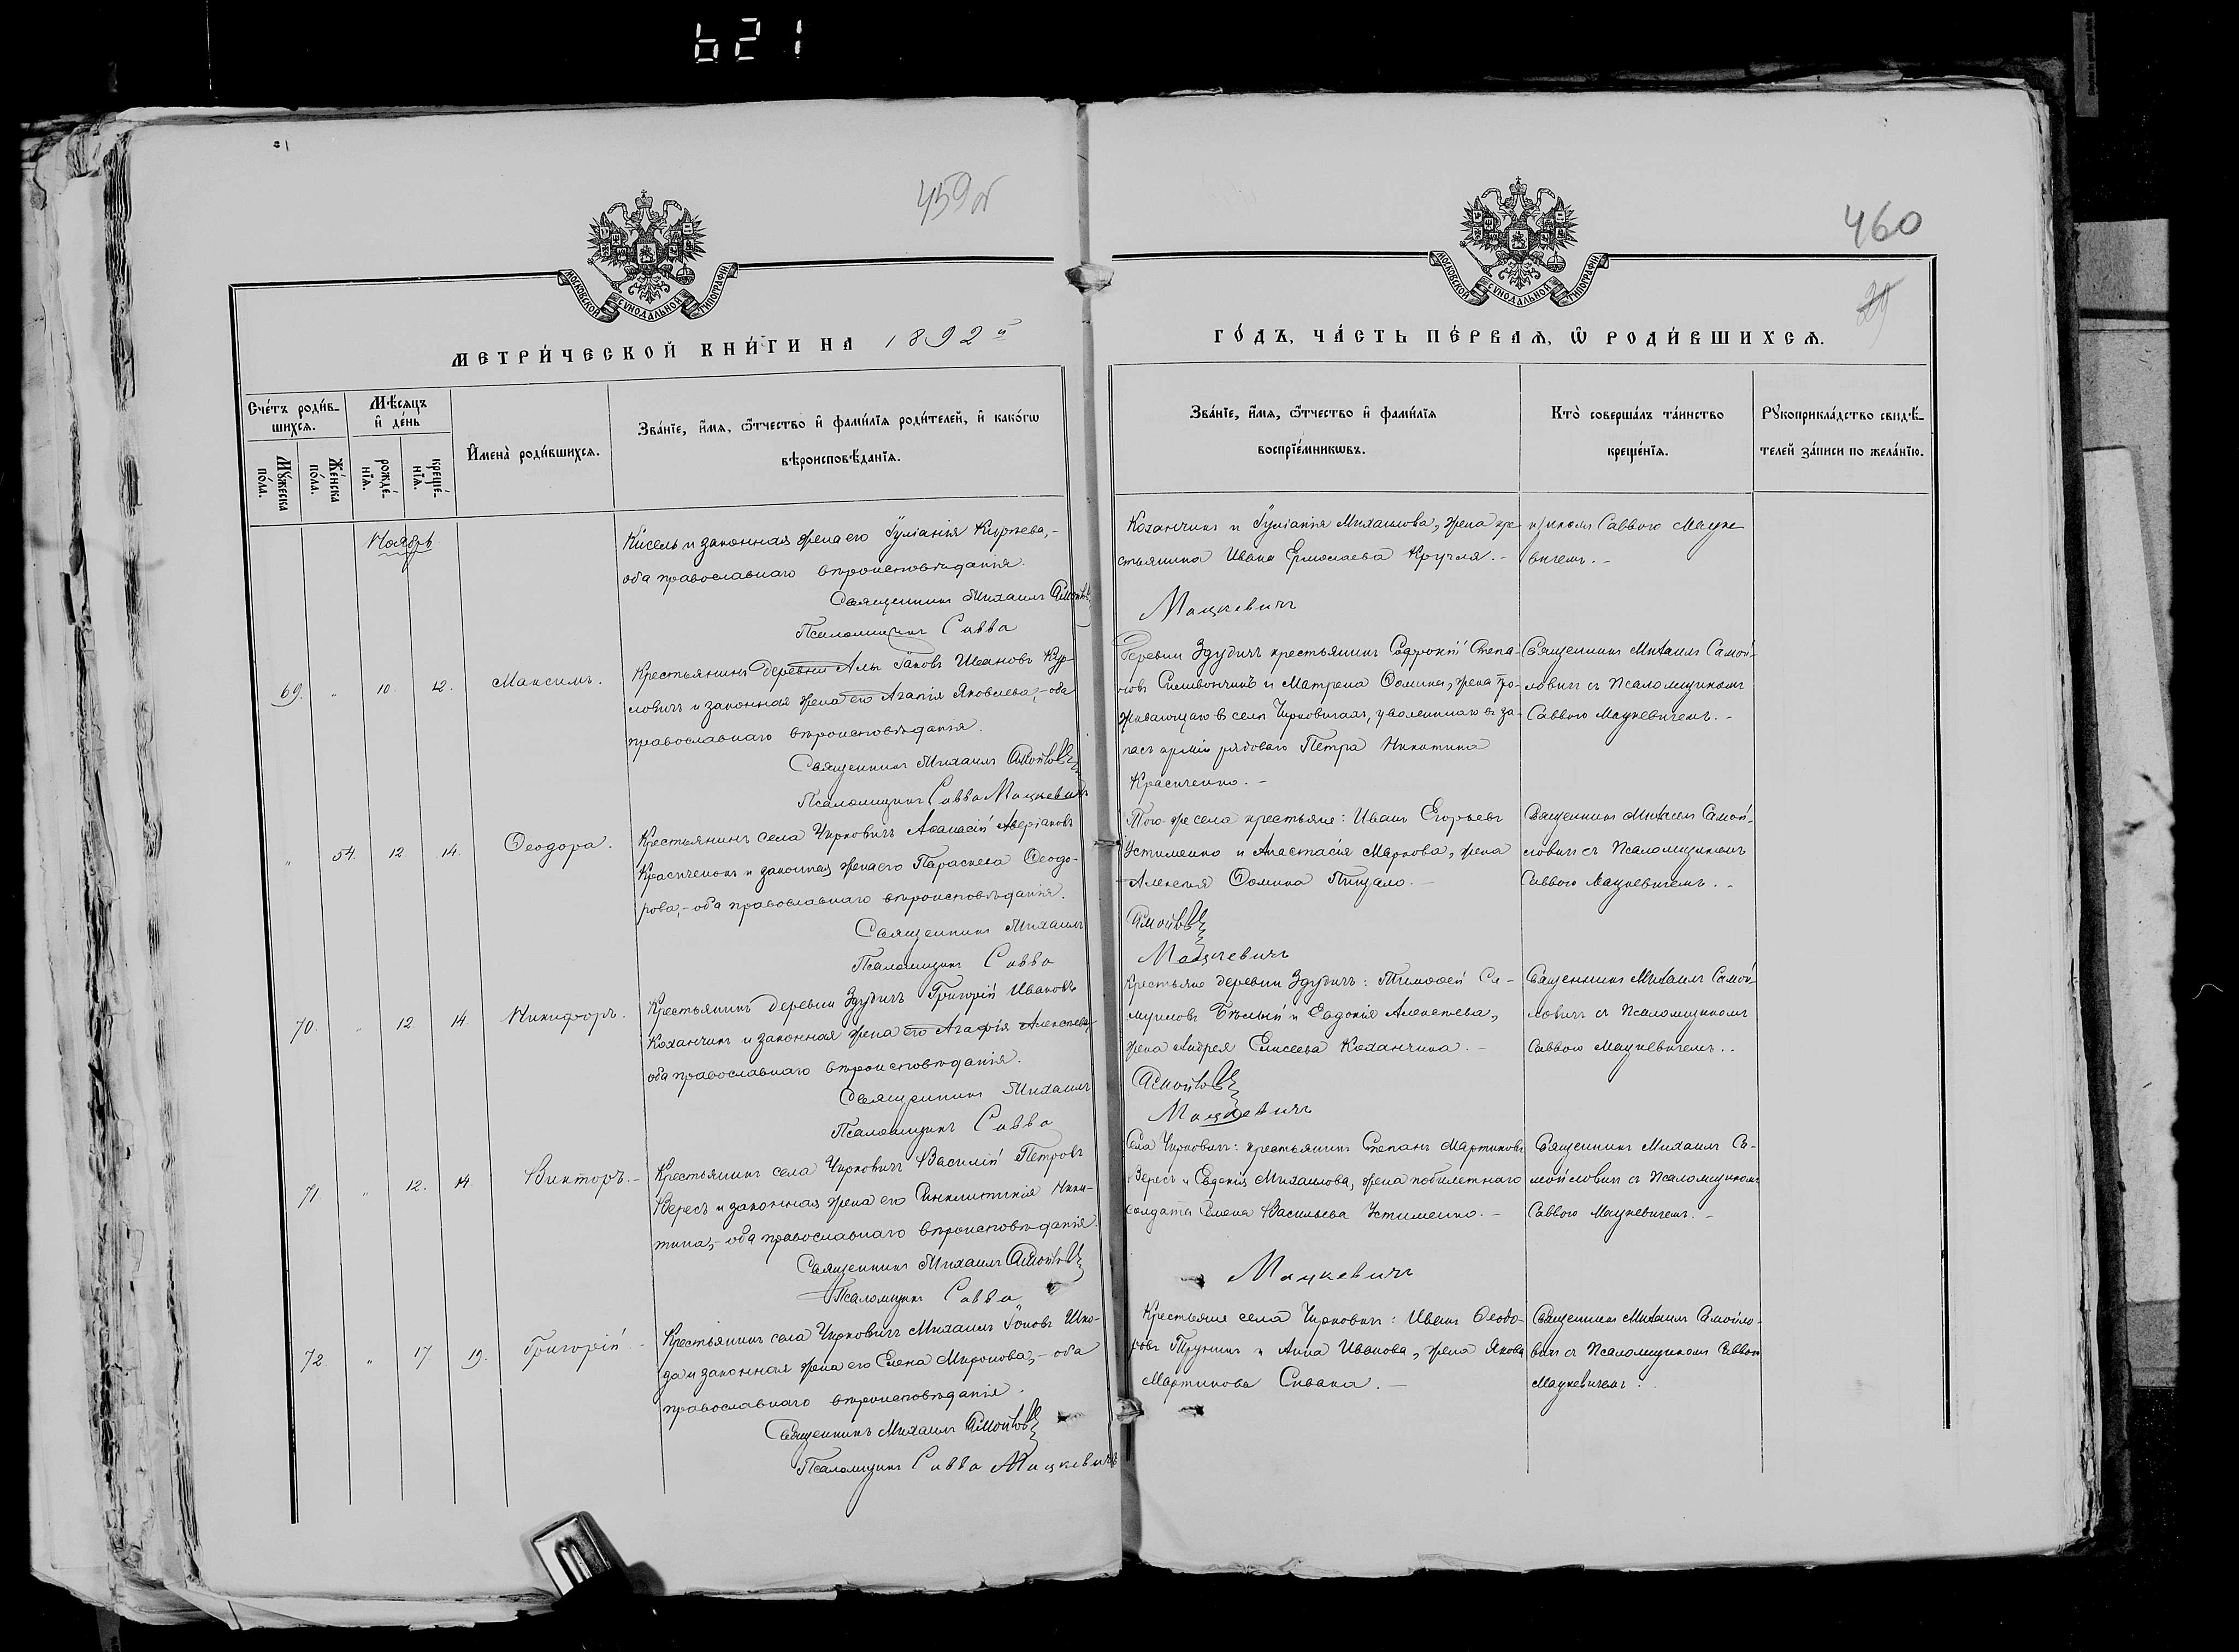 621
459об
460
29
МОСКОВСКОЙ СѴНОДАЛЬНОЙ ТИПОГРАФІИ
МОСКОВСКОЙ СѴНОДАЛЬНОЙ ТИПОГРАФІИ
МЕТРИ́ЧЕСКОЙ КНИ́ГИ НА 1892й
ГО́ДЪ, ЧА́СТЬ ПЕ́РВАѦ, Ѿ РОДИ́ВШИХСѦ.
Сче́тъ роди́в-
шихсѧ.
Мꙋ́жеска по́ла.
Же́нска по́ла.
Мѣ́сѧцъ и҆ де́нь
рожде́-
нїѧ.
креще́-
нїѧ.
И҆мена̀ роди́вшихсѧ.
Зва́нїе, и҆́мѧ, ѻ҆́тчество и҆ фами́лїѧ роди́телей, и҆ како́гѡ
вѣроисповѣ́данїѧ.
Зва́нїе, и҆́мѧ, ѻ҆́тчество и҆ фами́лїѧ
воспрїе́мникѡвъ.
Кто̀ соверша́лъ та́инство
креще́нїѧ.
Рꙋкоприкла́дство свидѣ́-
телей за́писи по жела́нїю.
Ноябрь
Кисель и законная жена его Іуліанія Киреева,-
оба православнаго вѣроисповѣданія.
Священникъ Михаилъ Самойловичъ
Псаломщикъ Савва
Коханчикъ и Іуліанія Михаилова, жена кре-
стьянина Ивана Ермолаева Кручля.-
Саввою Мацке-
вичемъ.-
Мацкевичъ
69. " 10. 12. Максимъ.
Крестьянинъ деревни Алы Іаковъ Ивановъ Кур-
ловичъ и законная жена его Агапія Яковлева,- оба
православнаго вѣроисповѣданія.
Священникъ Михаилъ Самойловичъ
Псаломщикъ Савва Мацкевичъ
Деревни Здудичъ крестьянинъ Софроній Степа-
новъ Силивончикъ и Матрена Ѳомина, жена про-
живающаго въ селѣ Чирковичахъ, уволеннаго въ за-
пасъ арміи рядоваго Петра Никитина
Красненко.-
Священникъ Михаилъ Самой-
ловичъ съ Псаломщикомъ
Саввою Мацкевичемъ.-
" 54. 12. 14. Ѳеодора.
Крестьянинъ села Чирковичъ Аѳанасій Аверіановъ
Красненокъ и законная жена его Параскева Ѳеодо-
рова,- оба православнаго вѣроисповѣданія.
Священникъ Михаилъ
Псаломщикъ Савва
Того-же села крестьяне: Иванъ Егорьевъ
Устименко и Анастасія Маркова, жена
Алексѣя Ѳомина Пищало.-
Самойловичъ
Мацкевичъ
Священникъ Михаилъ Самой-
ловичъ съ Псаломщикомъ
Саввою Мацкевичемъ.-
70. " 12. 14. Никифоръ.
Крестьянинъ деревни Здудичъ Григорій Ивановъ
Коханчикъ и законная жена его Агафія Алексѣева,
оба православнаго вѣроисповѣданія.
Священникъ Михаилъ
Псаломщикъ Савва
Крестьяне деревни Здудичъ: Тимоѳей Са-
муиловъ Бѣлый и Евдокія Алексѣева,
жена Андрея Елисеева Коханчика.-
Самойловичъ
Мацкевичъ
Священникъ Михаилъ Самой-
ловичъ съ Псаломщикомъ
Саввою Мацкевичемъ..
71. " 12. 14. Викторъ.-
Крестьянинъ села Чирковичъ Василій Петровъ
Вересъ и законная жена его Синклитикія Ники-
тина,- оба православнаго вѣроисповѣданія.
Священникъ Михаилъ Самойловичъ
Псаломщикъ Савва
Села Чирковичъ: крестьянинъ Степанъ Мартиновъ
Вересъ и Евдокія Михаилова, жена побилетнаго
солдата Семена Васильева Устименко.-
Мацкевичъ
Священникъ Михаилъ Са-
мойловичъ съ Псаломщикомъ
Саввою Мацкевичемъ.-
72. " 17 19. Григорій.-
Крестьянинъ села Чирковичъ Михаилъ Іоновъ Шко-
да и законная жена его Елена Миронова,- оба
православнаго вѣроисповѣданія.
Священникъ Михаилъ Самойловичъ
Псаломщикъ Савва Мацкевичъ
Крестьяне села Чирковичъ: Иванъ Ѳеодо-
ровъ Трункъ и Анна Иванова, жена Якова
Мартинова Спвака.-
Священникъ Михаилъ Самойло-
вичъ съ Псаломщикомъ Саввою
Мацкевичемъ.